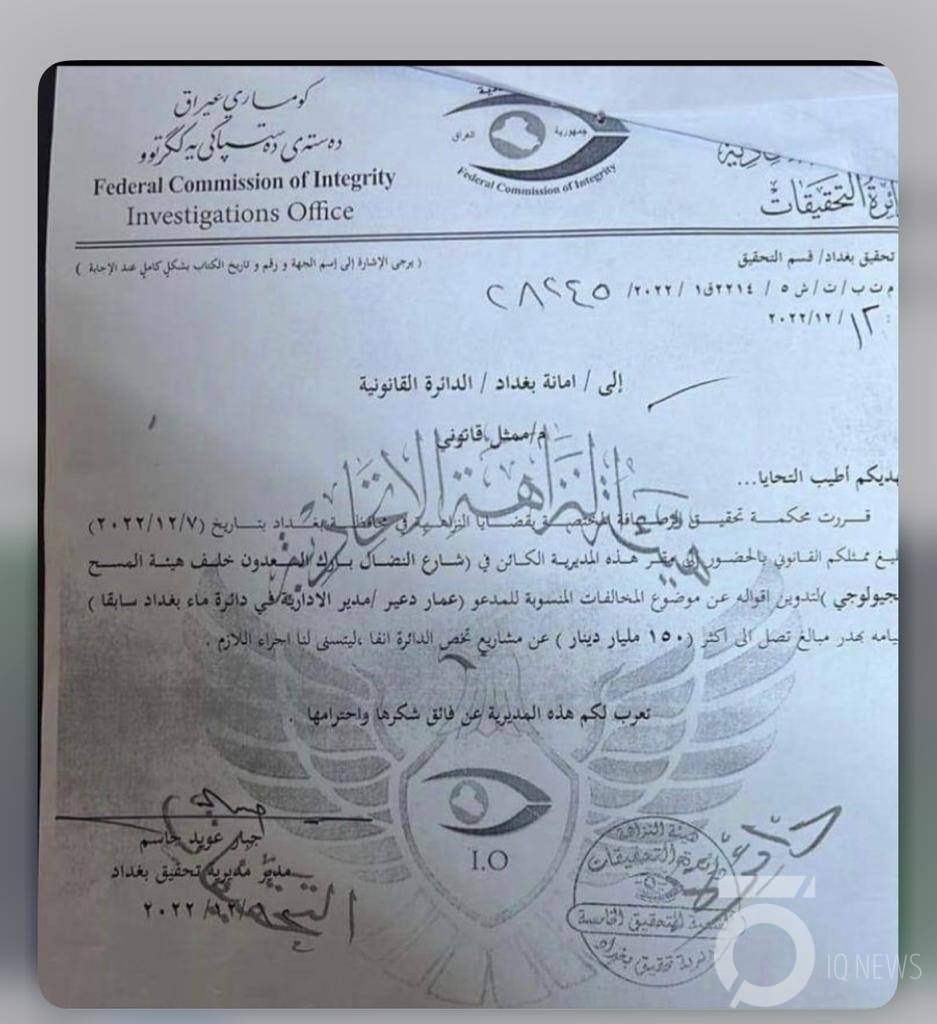 كوماري عيراق
دەستەى دەستپاكى يەكگرتوو
Federal Commission of Integrity
Investigations Office
جمهورية
العراق
Federal Commission of Integrity
دائرة التحقيقات
تحقيق بغداد/ قسم التحقيق
( يرجى الإشارة إلى إسم الجهة و رقم و تاريخ الكتاب بشكل كامل عند الإجابة )
م ت ب / ت / ش ٥ / ٢٢١٤ق١ / ٢٠٢٢/ ٢٨٢٤٥
١٢/ ٢٠٢٢/١٢
إلى / امانة بغداد / الدائرة القانونية
م/ممثل قانوني
هديكم أطيب التحايا...
قررت محكمة تحقيق الرصافة المختصة بقضايا النزاهة في محافظة بغداد بتاريخ (٢٠٢٢/١٢/٧)
ليغ ممثلكم القانوني بالحضور إلى مقر هذه المديرية الكائن في (شارع النضال بارك السعدون خليف هيئة المسح
لجيولوجي )لتدوين اقواله عن موضوع المخالفات المنسوبة للمدعو (عمار دعير /مدير الادارية في دائرة ماء بغداد سابقا )
يامه بهدر مبالغ تصل الى اكثر (١٥٠ مليار دينار ) عن مشاريع تخص الدائرة انفا ،ليتسنى لنا اجراء اللازم .
تعرب لكم هذه المديرية عن فائق شكرها واحترامها .
هيأة النزاهة الاتحادية
I.O
جبار عويد جاسم
مدير مديرية تحقيق بغداد
٢٠٢٢/١٢/
هيئة النزاهة
دائرة التحقيقات
شعبة التحقيق الخامسة
مديرية تحقيق بغداد
IQ NEWS